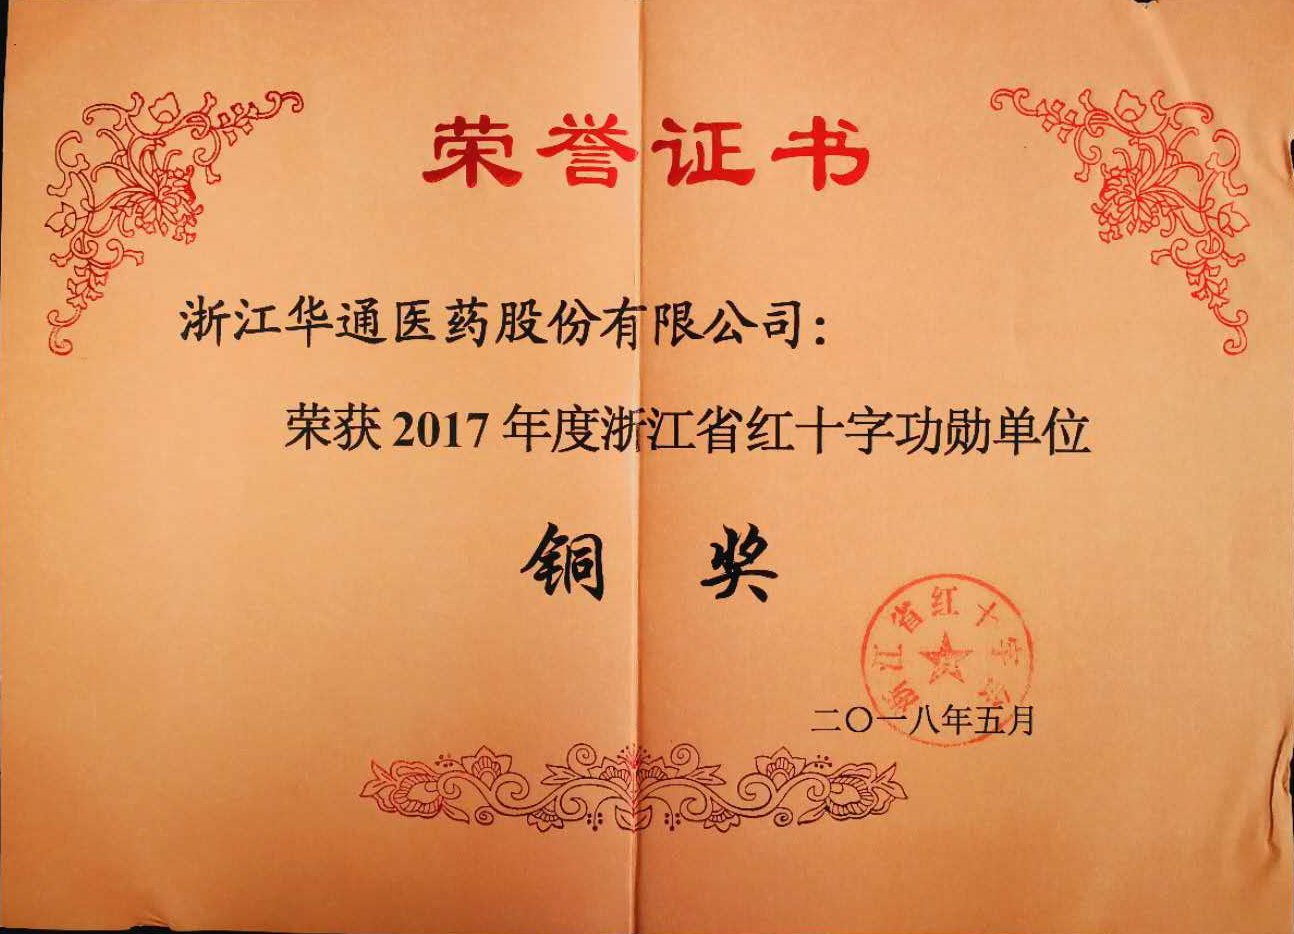 荣誉证书
浙江华通医药股份有限公司：
荣获2017年度浙江省红十字功勋单位
铜 奖
浙江省红十字会
二〇一八年五月